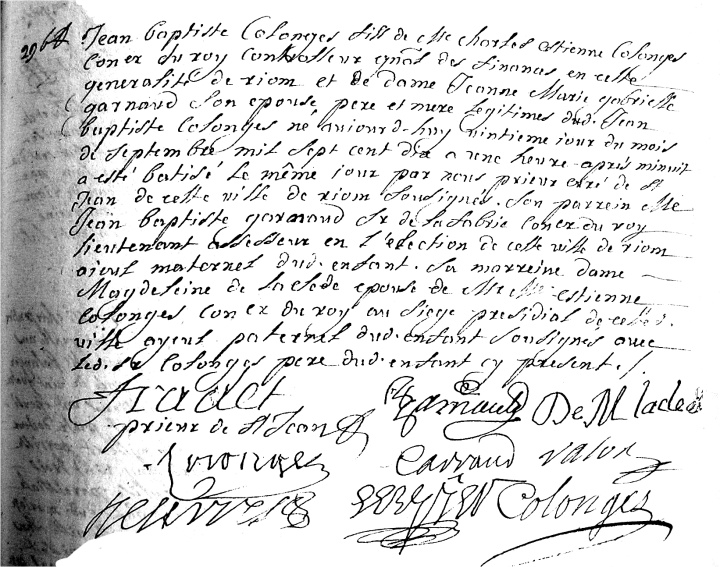 29 bt Jean baptiste Colonges fils de Me Charles Estienne Colonges
Coner du roy Controlleur gnal des finances en cette
generalité de riom et de dame Jeanne Marie gabrielle
garnaud son epouse pere et mere legitimes dud. Jean
baptiste Colonges né aujourd-huy vintieme jour du mois
de septembre mil sept cent dix a une heure apres minuit
a esté batisé le même jour par nous prieur curé de St
Jean de cette ville de riom sousignés. Son parrein Me
Jean baptiste garnaud Sr de la fabrie Coner du roy
lieutenant assesseur en l'election de cette ville de riom
aieul maternel dud. enfant. Sa marreine dame
Magdeleine de la clede epouse de Me Estienne
Colonges Coner du roy au siege presidial de cette d.
ville ayeul paternel dud. enfant sousignés avec
led. Sr Colonges pere dud. enfant cy present ./.
garnaud De M lacle
prieur de St Jean
Colonges